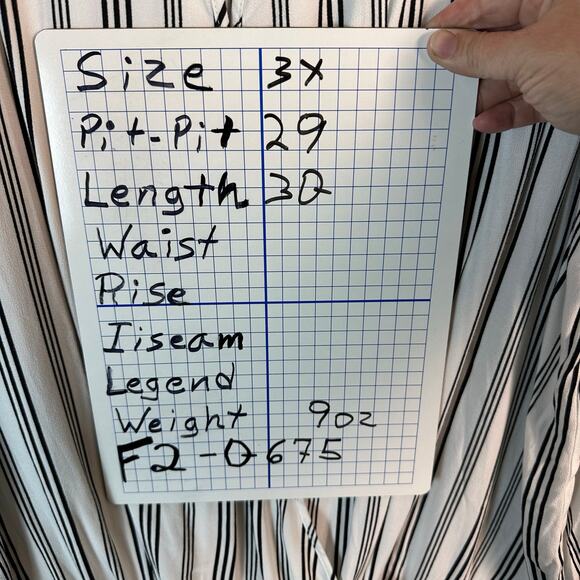 Size 3X
Pit-Pit 29
Length 30
Waist
Rise
Iiseam
Legend
Weight 9oz
F2-0675